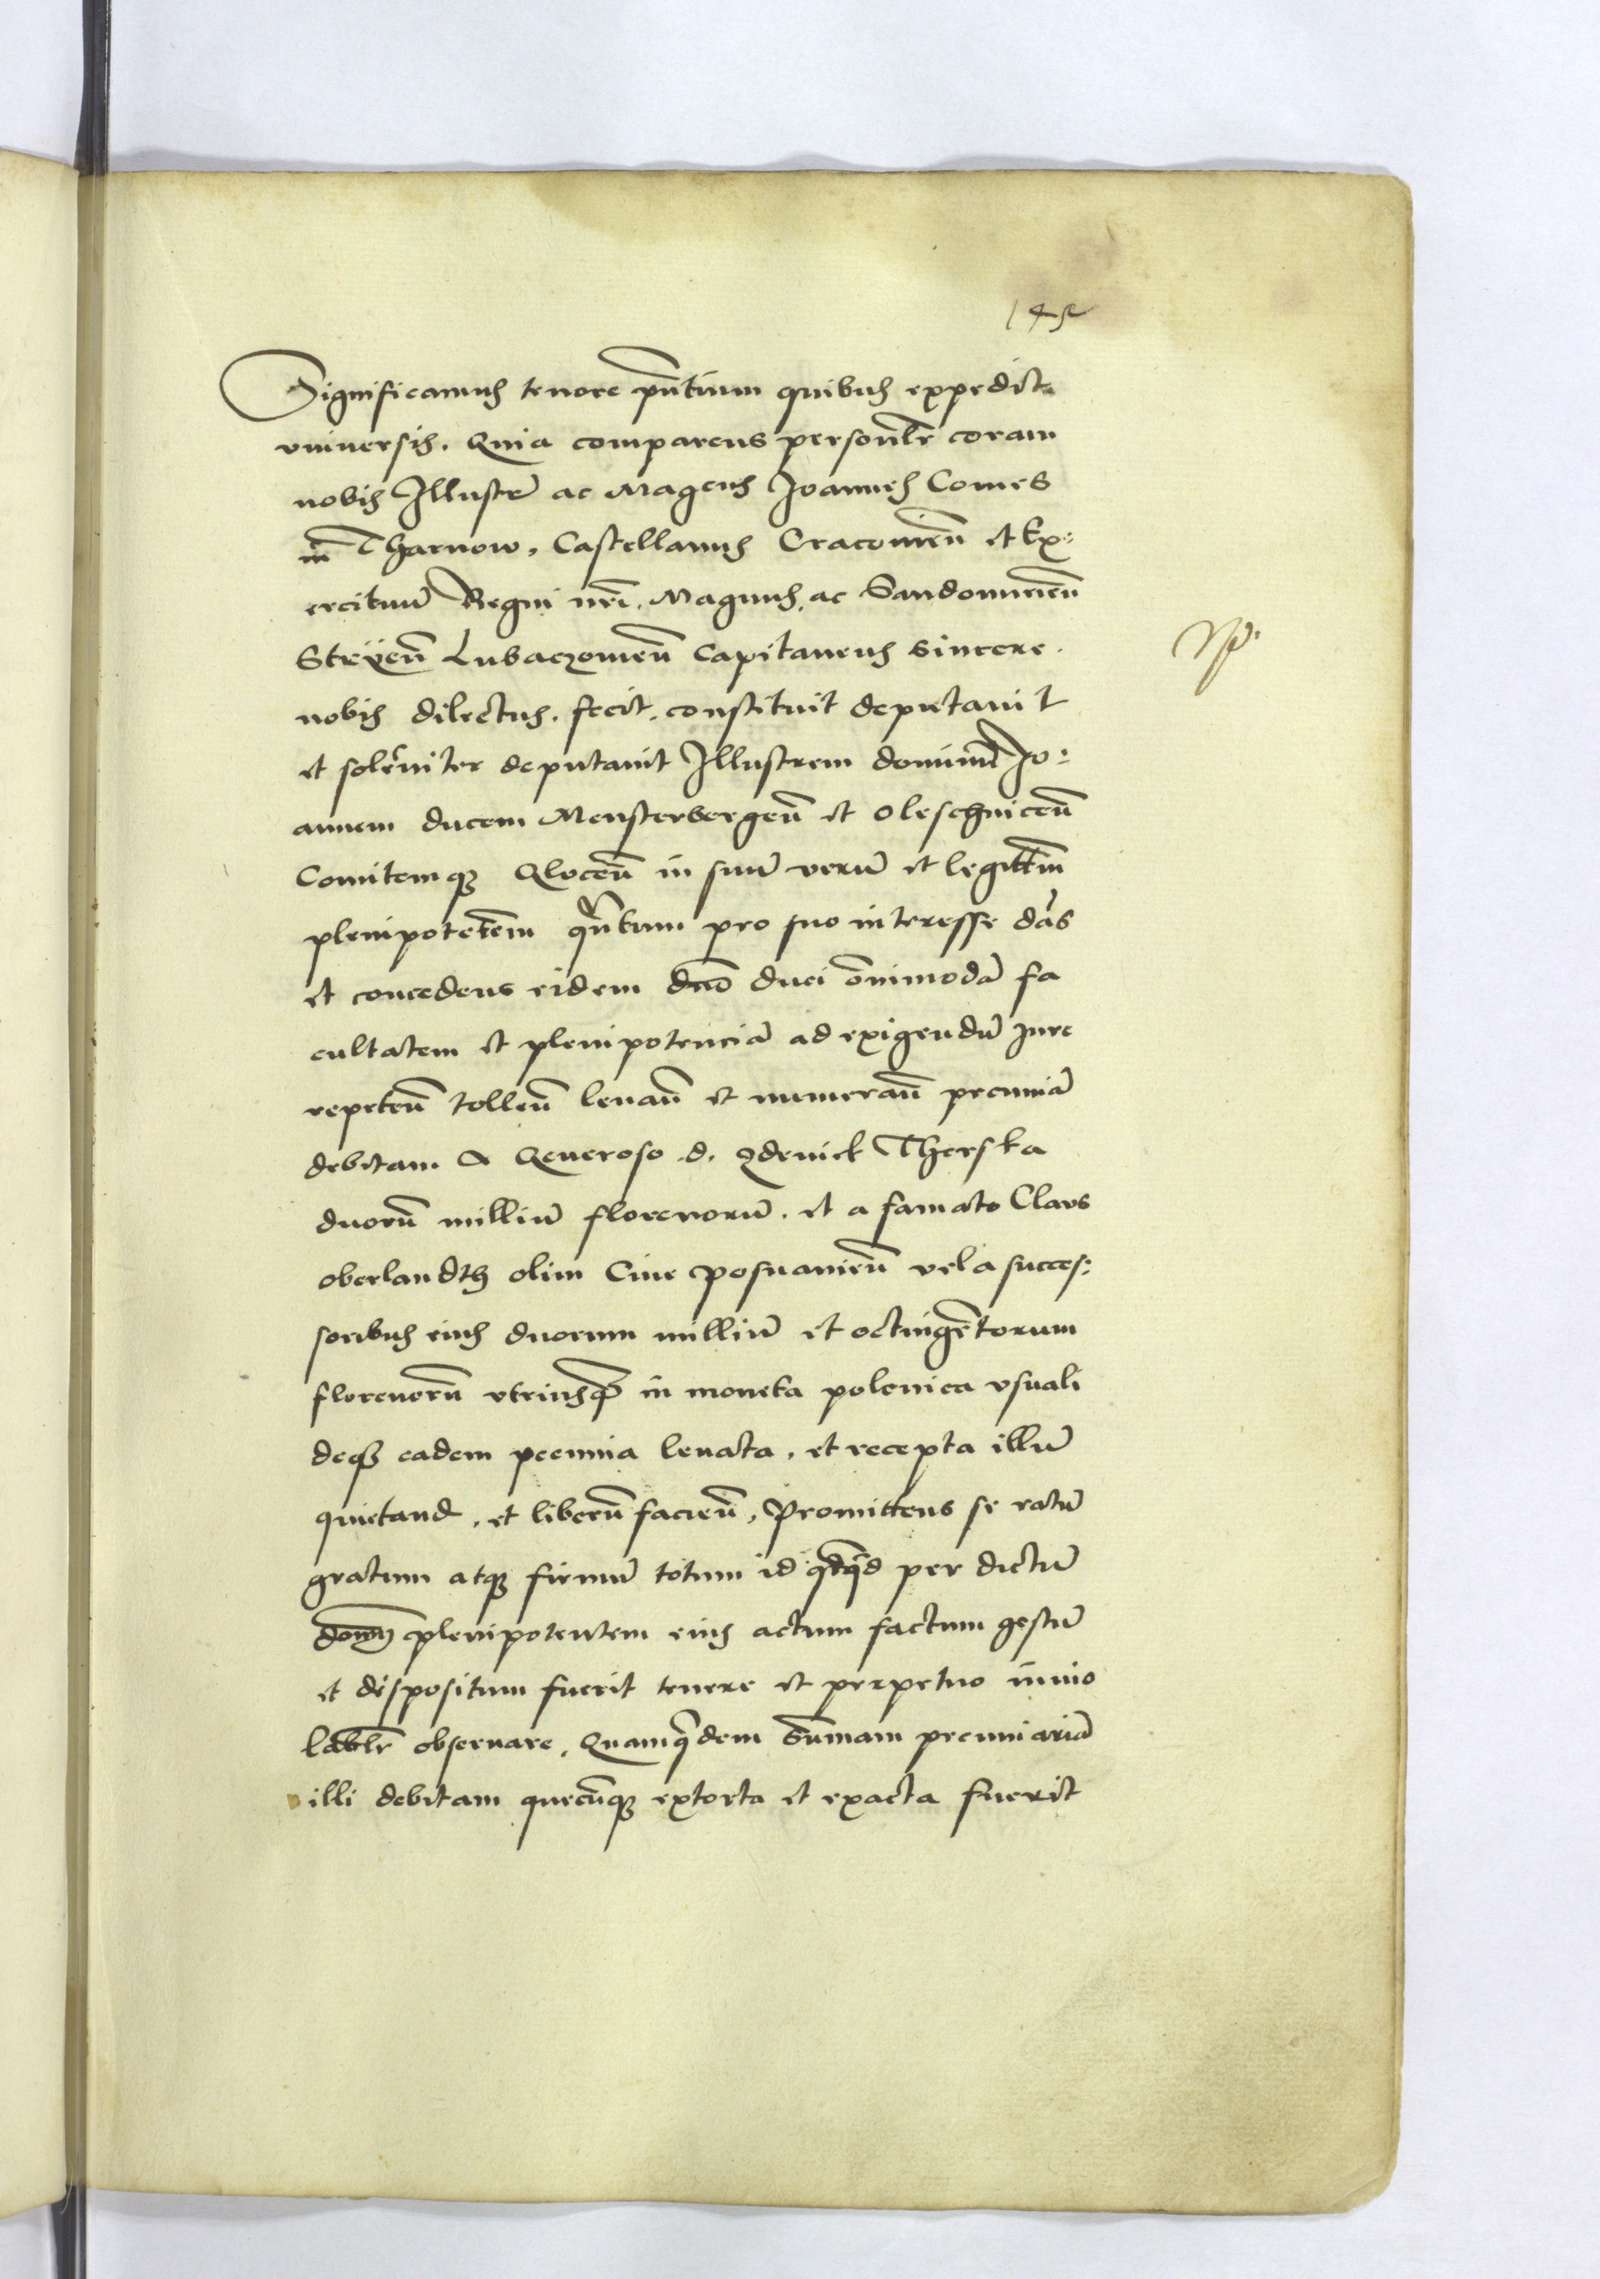 145
Significamus tenore pñtium quibus expedit
vniuersis. Quia comparens personlr coram
nobis Illustr ac Magcus Joannes Comes
in Tharnow, Castellanus Cracouień et Ex:
ercituū Regni nrī, Magnus, ac Sandomirień
Stryeñ Lubaczouieñ Capitaneus sincere
nobis dilectus. fecit. constituit deputauit
et solēniter deputauit Illustrem dominū Jo:
annem ducem Mensterbergeñ et Oleschniceñ
Comitemq3 Gloceñ in suū verū et legittim̄
plenipotētem qn̄tum pro suo interesse dās
et concedens eidem dno duci ōnimodā fa
cultatem et plenipotenciā ad exigendū Jure
repeteñ tolleñ leuañ et numerañ pecuniā
debitam A Generoso d. Zdenick Therska
duorū milliū florenorū. et a famato Claus
oberlandth olim Ciue Posnanień vel a succes:
soribus eius duorum milliū et octingētorum
florenorū vtriusq3 in moneta polonica vsuali
deq3 eadem pecunia leuata, et recepta illū
quietand, et liberū facieñ, Promittens se ratū
gratum atq3 firmū totum id qdqd per dictū
domm plenipotentem eius actum factum gestū
et dispositum fuerit tenere et perpetuo inuio
lablr obseruare, Quamqdem Summam pecuniariā
illi debitam quecūq3 extorta et exacta fuerit